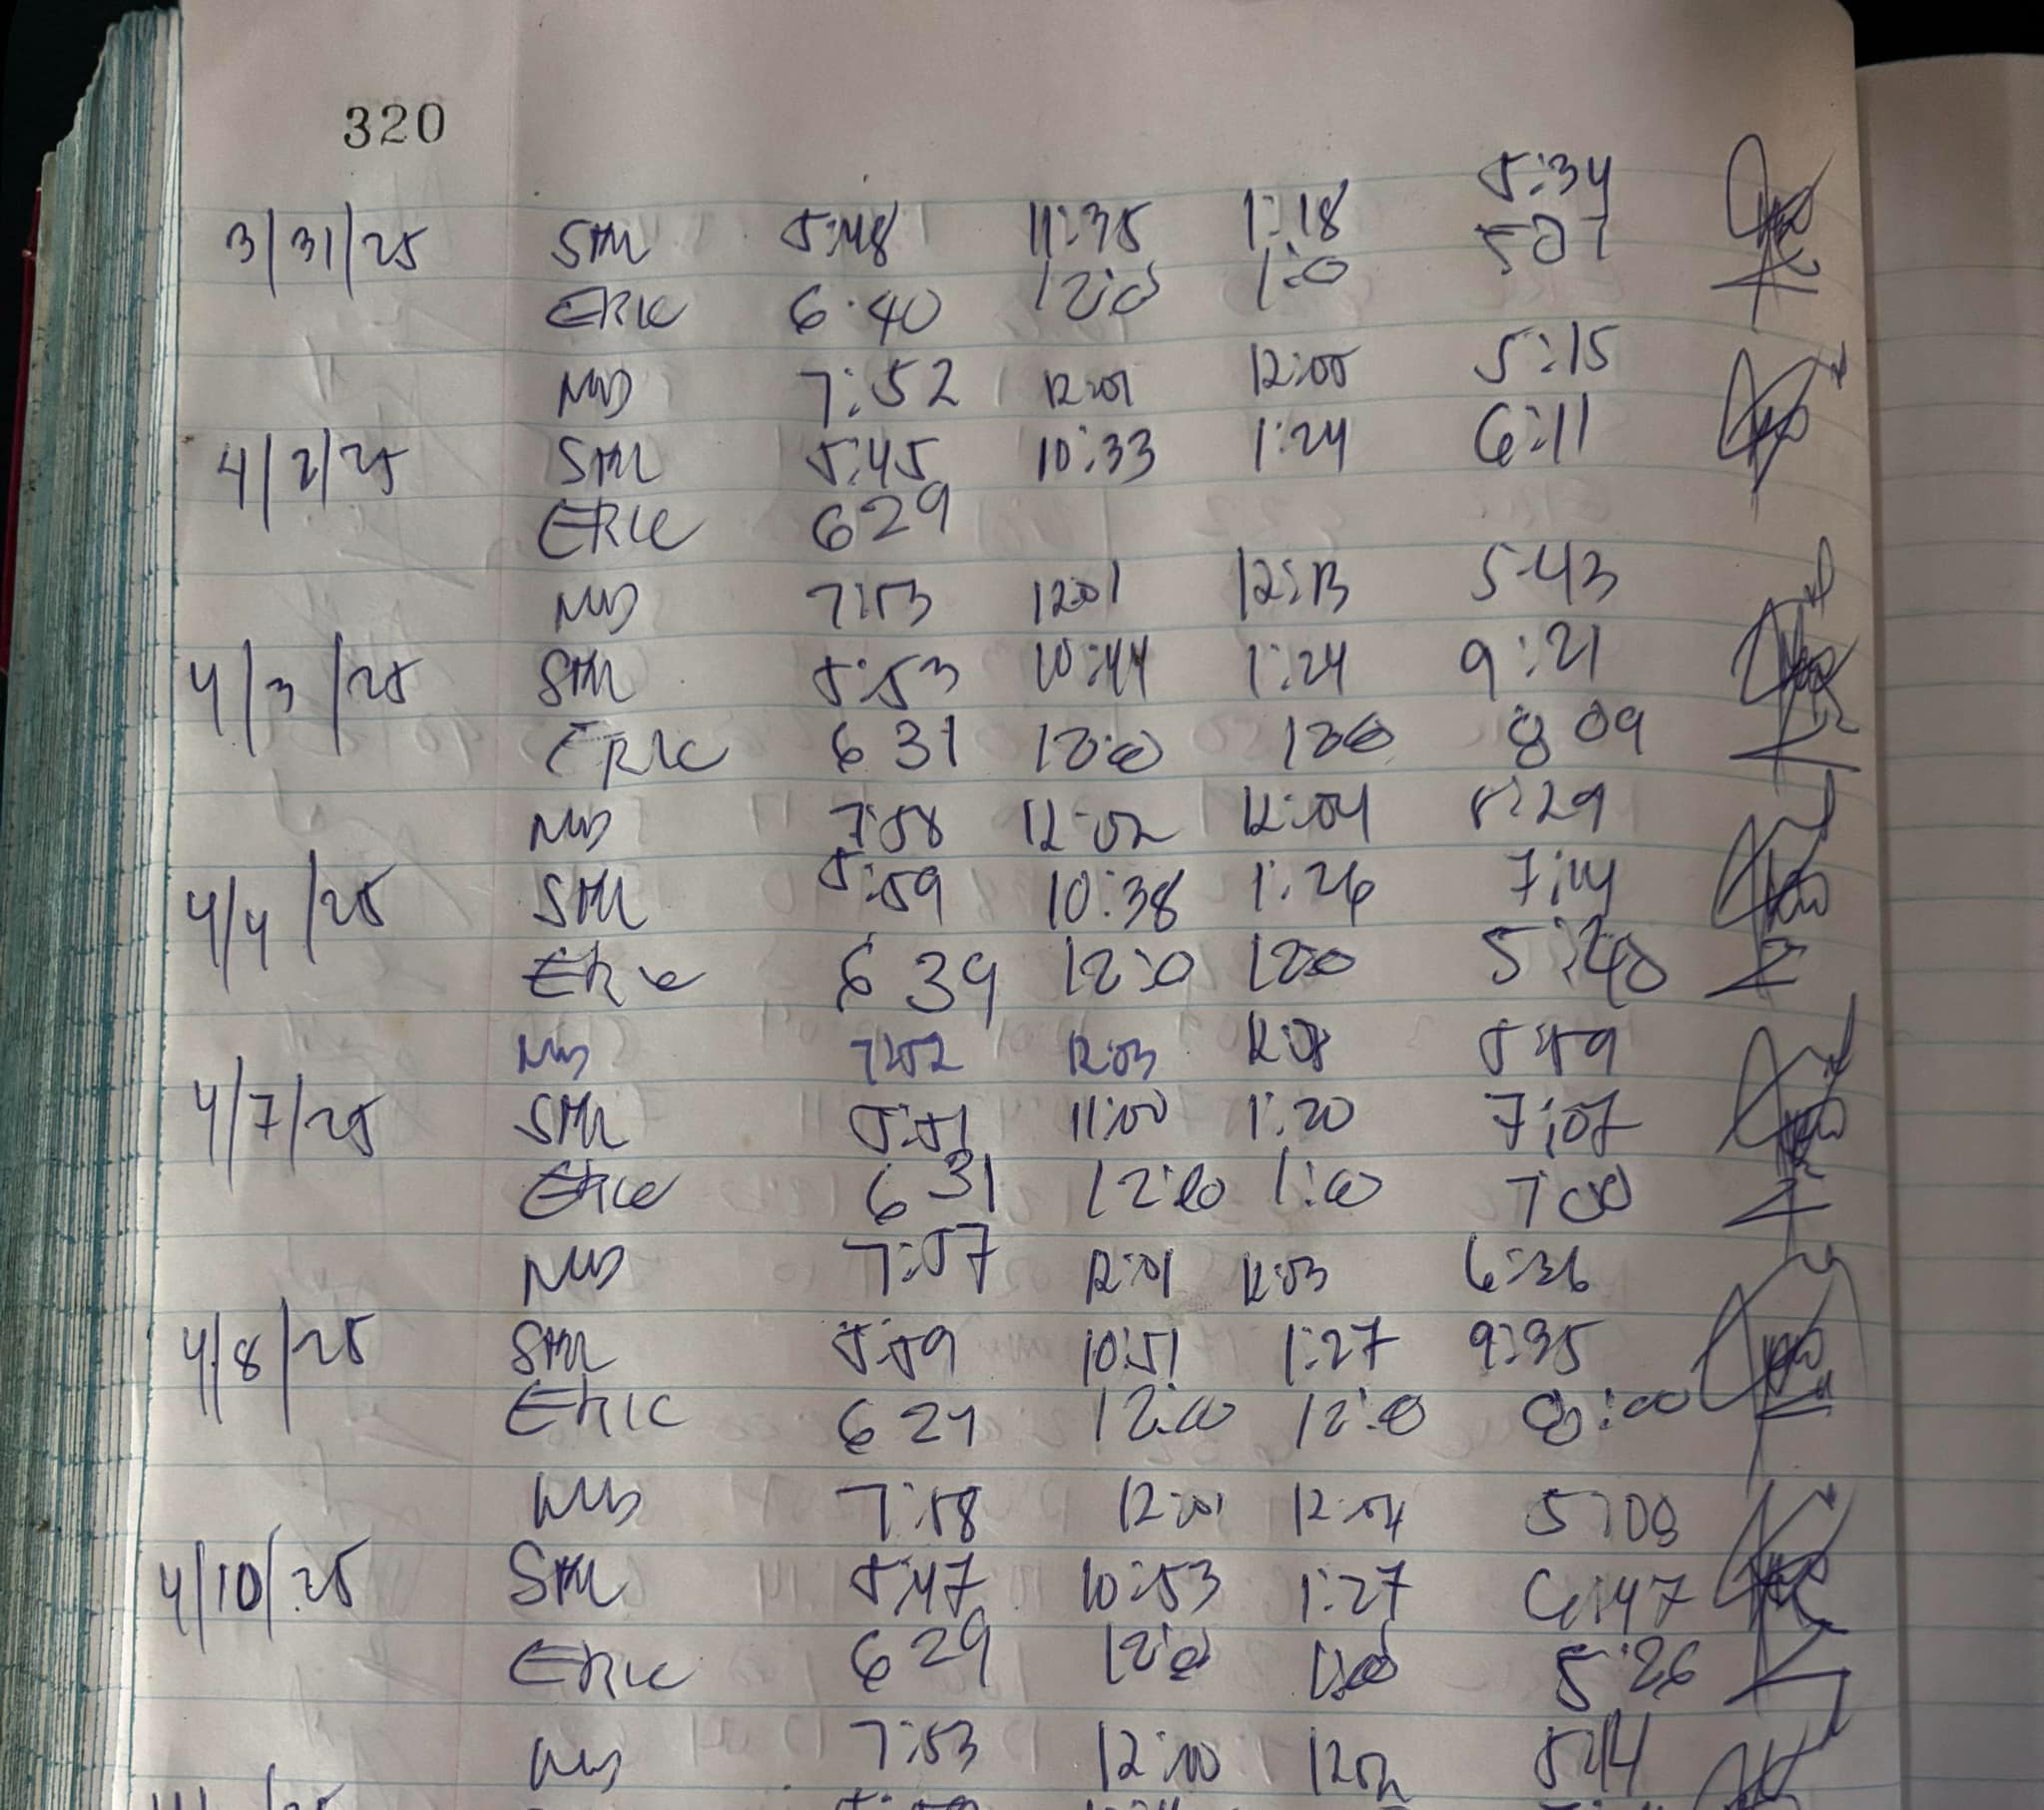 320
3/31/25 SML 5:48 11:35 1:18 5:34
ERIC 6:40 12:0 1:0 507
NWS 7:52 12:01 12:00 5:15
4/2/25 SML 5:45 10:33 1:24 6:11
ERIC 629
NWS 7:53 1201 12:13 5:43
4/3/25 SML 5:53 10:44 1:24 9:21
ERIC 6 31 12:0 8 09
NWS 7:58 12:02 12:04 5:29
4/4/25 SML 5:59 10:38 1:26 7:14
ERIC 6 39 12:0 1200 5:40
NWS 7:52 12:03 5:59
4/7/25 SML 5:51 11:00 1:20 7:07
ERIC 6 31 12:00 1:00 7 00
NWS 7:57 12:01 12:03 6:36
4/8/25 SML 5:59 10:51 1:27 9:35
ERIC 6 29 12:00 12:0 8:00
NWS 7:58 12:01 12:04 5:08
4/10/25 SML 5:47 10:53 1:27 6:47
ERIC 6 29 12:0 5:26
NWS 7:53 12:00 1202 5:44